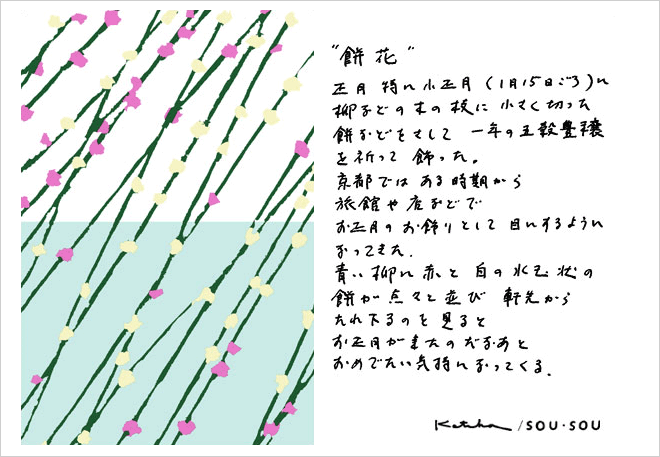 "餅花"
正月 特に小正月（1月15日ごろ）に
柳などの木の枝に 小さく切った
餅などをさして 一年の五穀豊穣
を祈って 飾った。
京都では ある時期から
旅館や店などで
お正月のお飾りとして 目にするように
なってきた．
青い柳に赤と 白の水玉状の
餅が点々と並び 軒先から
たれ下るのを見ると
お正月がきたのだなあと
おめでたい気持になってくる．
/SOU・SOU